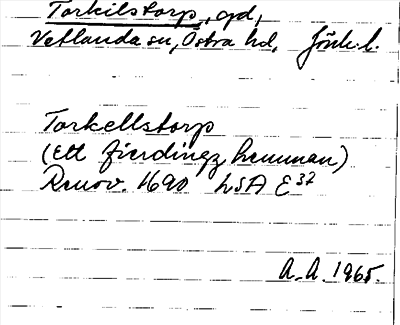 Torkilstorp, gd,
Vetlanda sn, Östra hd, Jönk.l.
Torkellstorp
(Ett fierdingz hemman)
Renov. 1690 LSA E37
A.A. 1965.